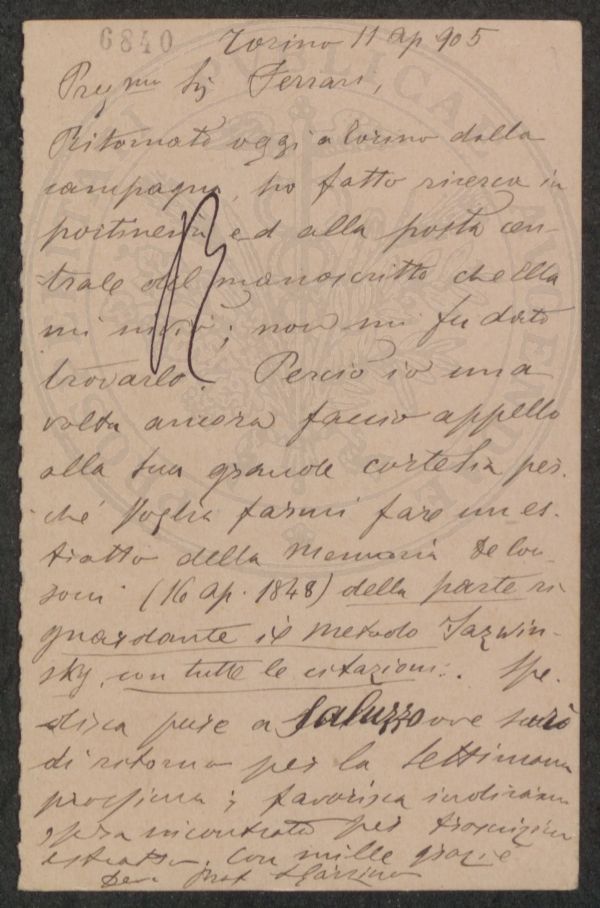 6840
Torino 11 ap 905
Preg.mo Sig Ferrari,
Ritornato oggi a Torino dalla
campagna, ho fatto ricerca in
portineria ed alla posta cen-
trale del manoscritto ch'Ella
mi inviò; non mi fu dato
trovarlo. Perciò io una
volta ancora faccio appello
alla Sua grande cortesia per-
chè voglia farmi fare un es-
tratto della Memoria
(16 ap. 1848) della parte ri-
guardante il metodo Jazwin-
sky, con tutte le citazioni. Spe-
disca pure a Saluzzo ove sarò
di ritorno per la Settimana
prossima; favorisca indicarmi
spesa incontrata per trascrizione
estratto. Con mille grazie
Dev. Prof